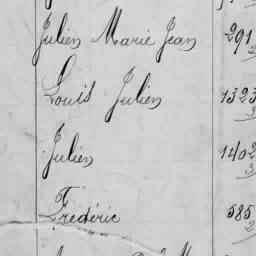 Julien Marie Jean 291
Louis Julien 1323
Julien 1402
Frédéric 585